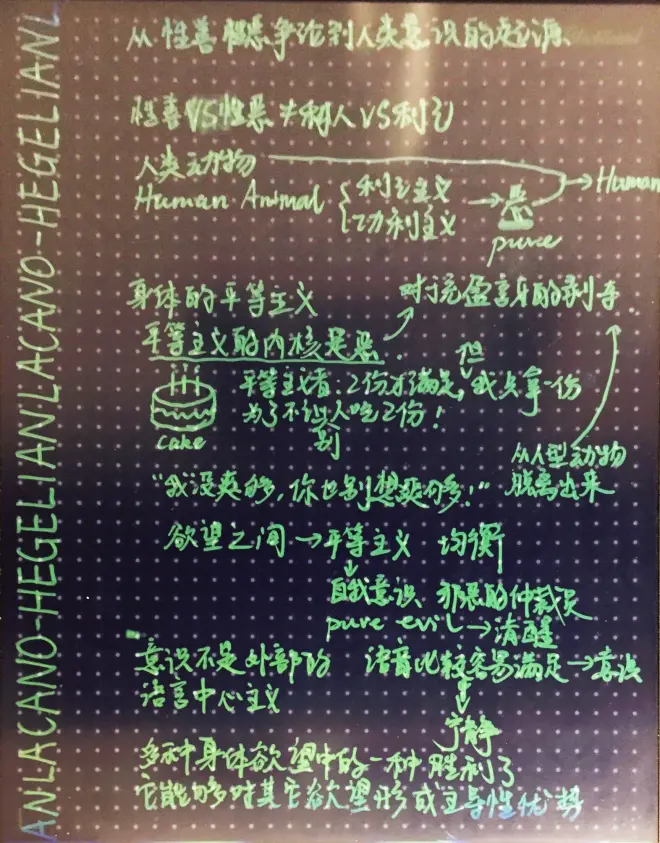 从性善性恶争论到人类意识的起源
性善VS性恶≠利人VS利己
人类动物
Human Animal
利己主义
功利主义
→恶
pure
→Human
身体的平等主义
对于充盈言身的剥夺
平等主义的内核是恶
cake
平等主义者:2份才满足,但我只拿一份
为了不让别人吃2份!
从人型动物
脱离出来
"我没爽够,你也别想爽够!"
欲望之间→平等主义 均衡
自我意识 邪恶的仲裁员
pure evil→清醒
意识不是外部的
语言中心主义
语音比较容易满足→意识
宁静
多种身体欲望中的一种胜利了
它能够对其它欲望形成主导性优势
ANLACANO-HEGELIANLACANO-HEGELIANL